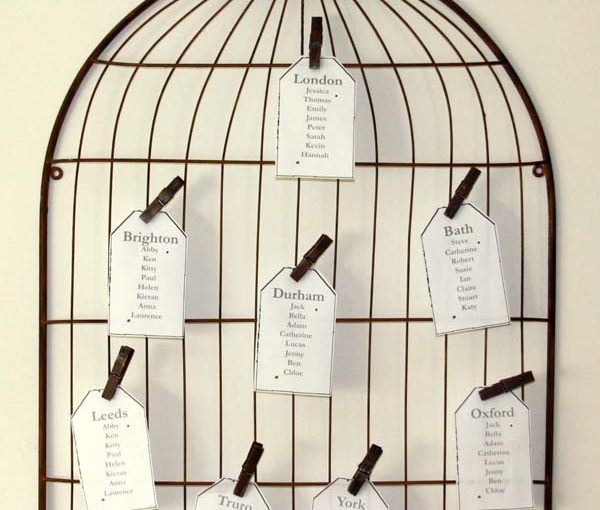 London
Jessica
Thomas
Emily
James
Peter
Sarah
Kevin
Hannah
Brighton
Abby
Ken
Kitty
Paul
Helen
Kieran
Anna
Laurence
Durham
Jack
Bella
Adam
Catherine
Lucas
Jenny
Ben
Chloe
Bath
Steve
Catherine
Robert
Susie
Ian
Claire
Stuart
Katy
Leeds
Abby
Ken
Kitty
Paul
Helen
Kieran
Anna
Laurence
Truro
York
Oxford
Jack
Bella
Adam
Catherine
Lucas
Jenny
Ben
Chloe